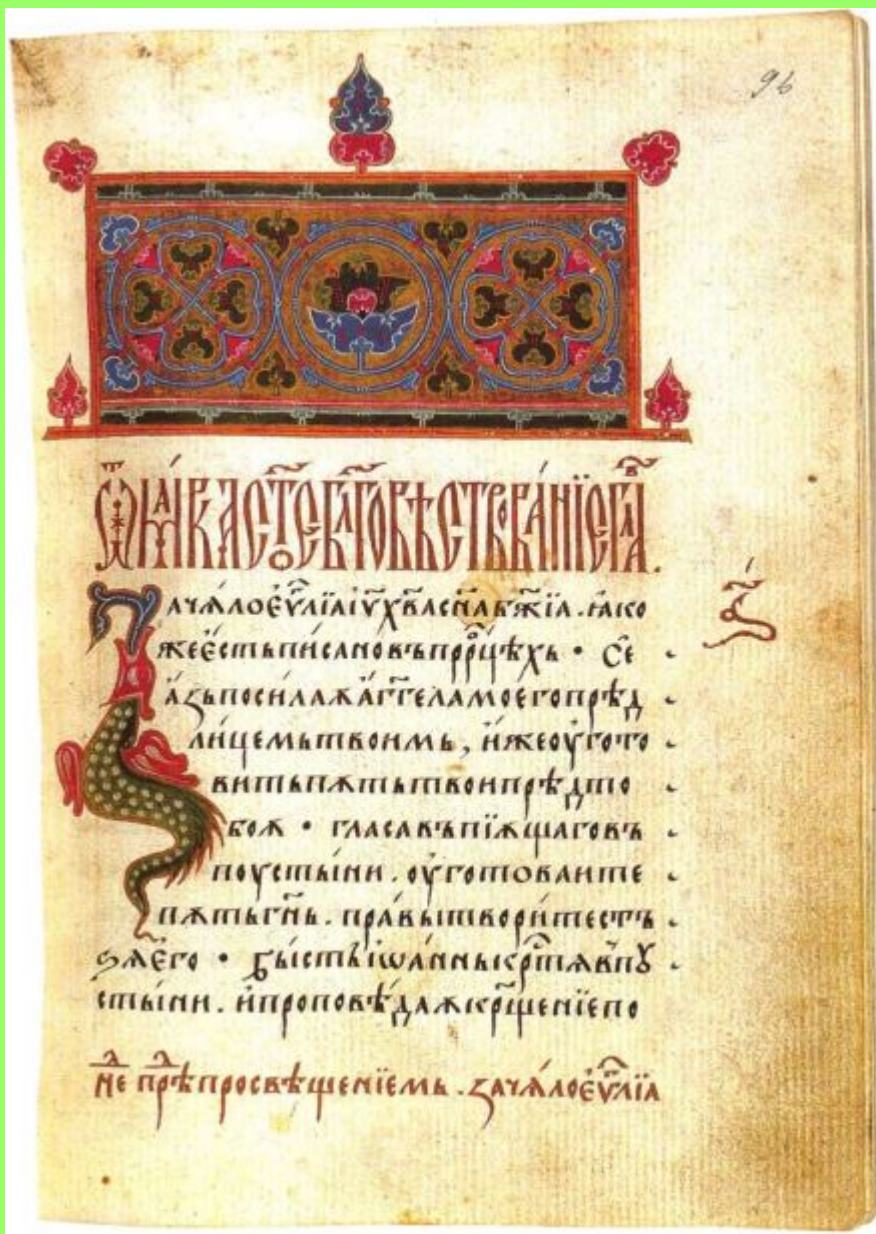 96
ѿ ма́рка ст҃ое бл҃говѣствова́нїе гл҃а в҃.
Зачѧ́ло єѵ҃лїа і҃ѵ х҃ва сн҃а бж҃їа . ꙗко
же є́сть писано въ пррⷪ҇цѣхь • Се
а҆зь посилаѫ а҆́гг҃ела моего прѣд
лицемь твоимь , и҆же оу҆гото
вить пѫть твои прѣд то
боѫ • гласа въпїѫщаго въ
поусты́ни . оу҆готованте
пѫть гн҃ь . пра́вы твори́те стъ
ѕѧ є҆го • Бы́сть і҆ѡа́нны крⷭ҇тѧ в пꙋ
сты́ни . и҆ проповѣ́даѫ крⷭ҇щенїе по
неⷣ прⷣѣ просвѣщенїемь . Зачѧло єѵ҃лїа